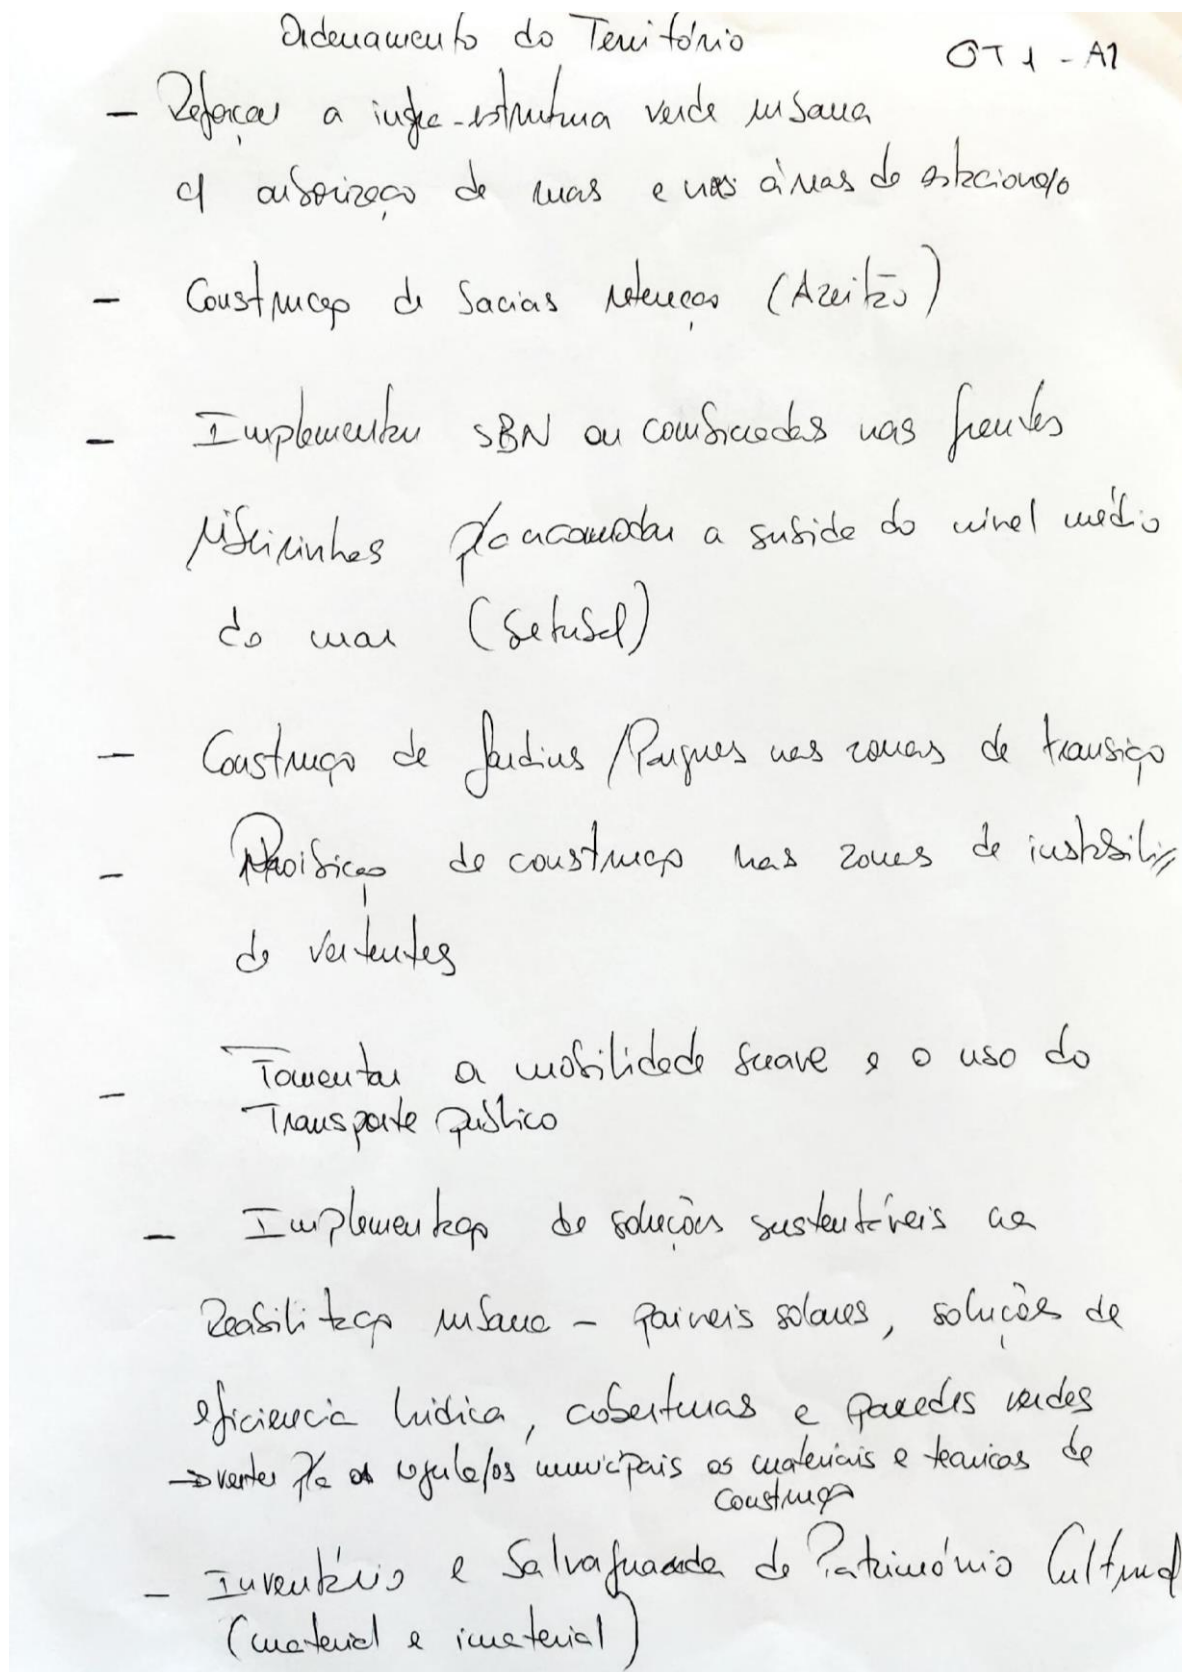 Ordenamento do Território
OT1 - A1
- Reforçar a infra-estrutura verde urbana
c/ arborização de ruas e nas áreas de estaciona/o
- Construção de bacias retenção (Azeitão)
- Implementar SBN ou combinadas nas frentes
ribeirinhas p/a acomodar a subida do nível médio
do mar (Setubal)
- Construção de Jardins / Parques nas zonas de transição
- Proibição de construção nas zonas de instabili//
de vertentes
- Fomentar a mobilidade suave e o uso do
Transporte público
- Implementação de soluções sustentáveis na
Reabilitação urbana - paineis solares, soluções de
eficiencia hidica, coberturas e paredes verdes
→ verter p/a os regula/os municipais os materiais e tecnicas de
construção
- Inventário e Salvaguarda do Património Cultural
(material e imaterial)